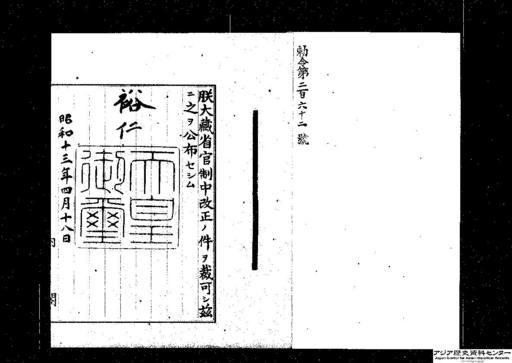 勅令第二百六十二號
朕大藏省官制中改正ノ件ヲ裁可シ茲
ニ之ヲ公布セシム
裕仁
天皇御璽
昭和十三年四月十八日
内閣
アジア歴史資料センター
Japan Center for Asian Historical Records